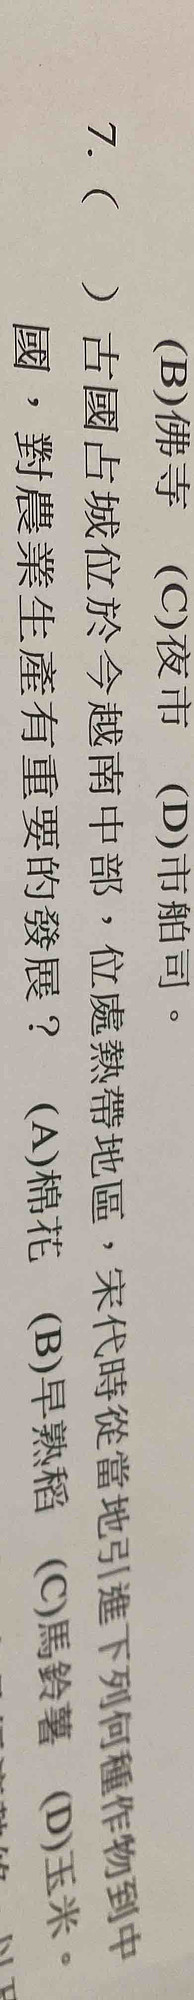 (B)佛寺 (C)夜市 (D)市舶司。
7.( )古國占城位於今越南中部,位處熱帶地區,宋代時從當地引進下列何種作物到中
國,對農業生產有重要的發展? (A)棉花 (B)早熟稻 (C)馬鈴薯 (D)玉米。